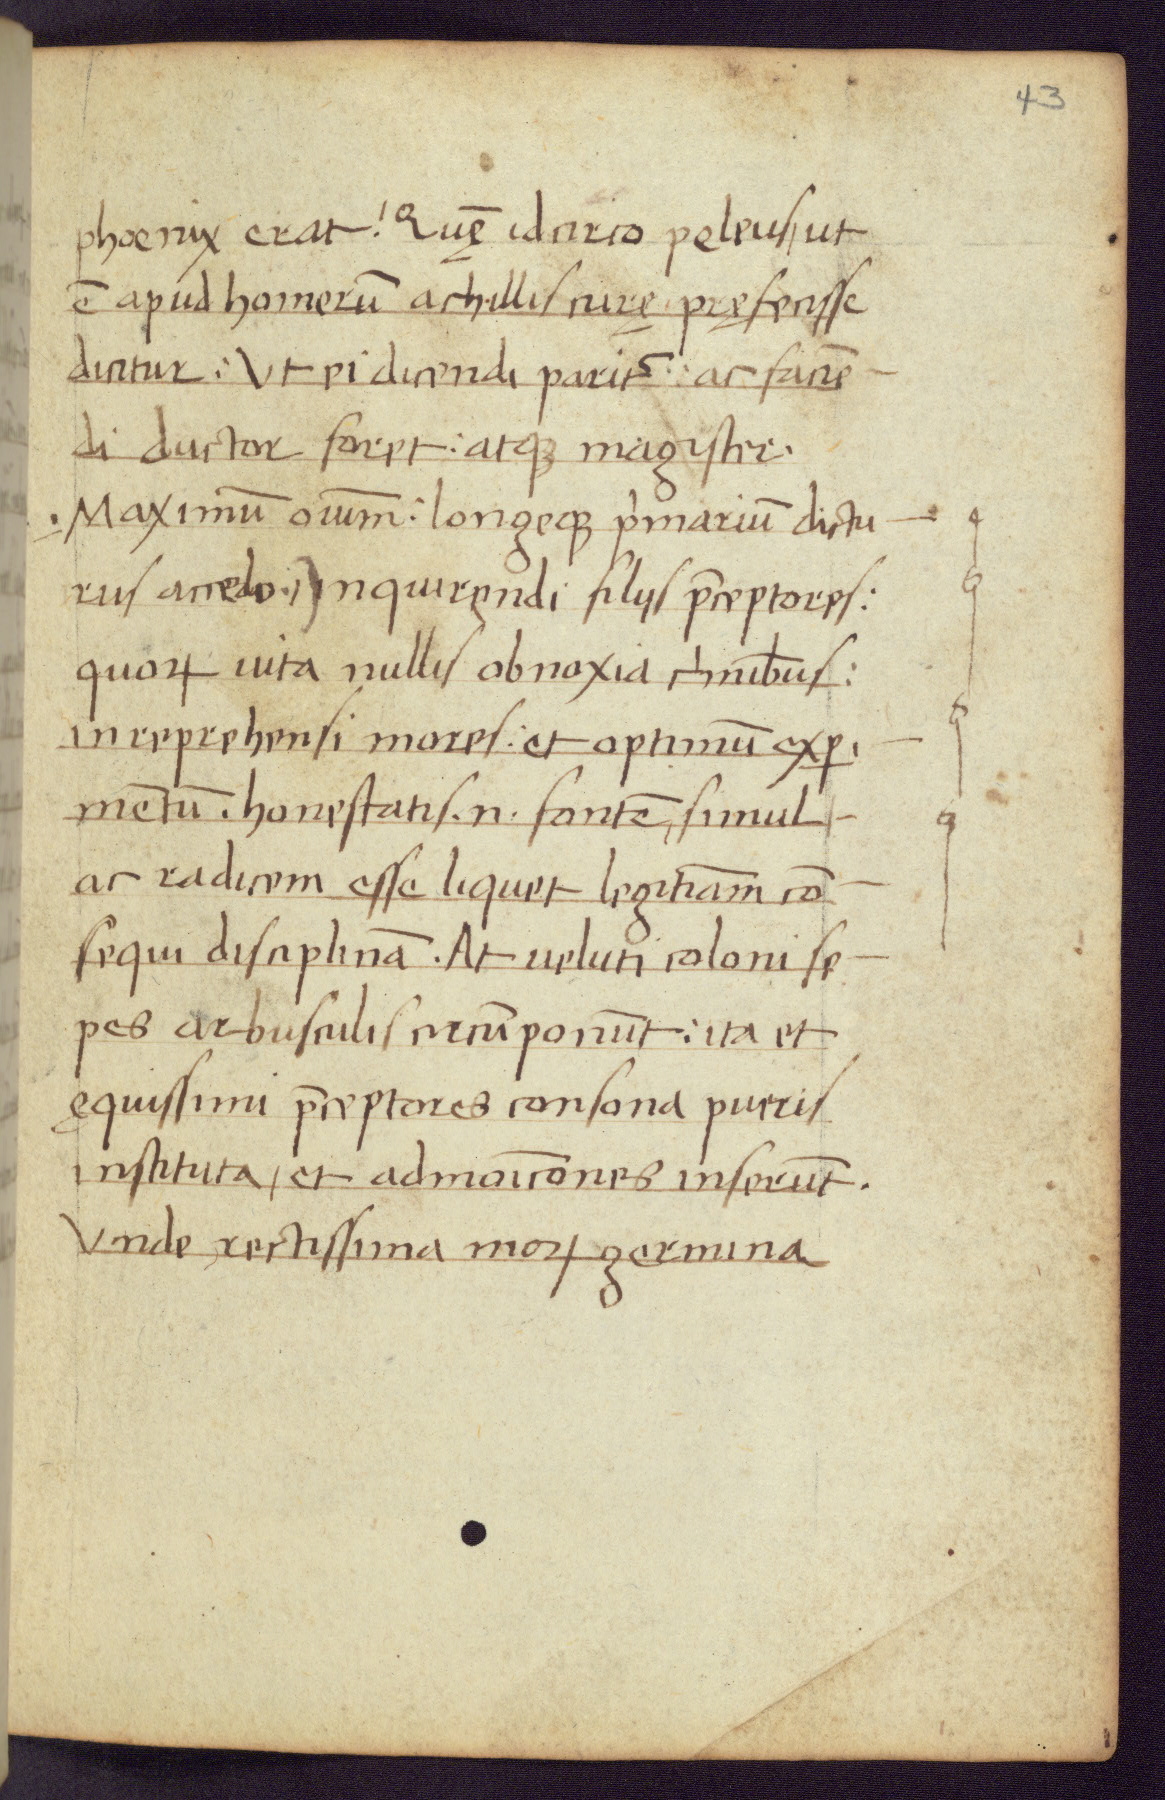 43
phoenix erat! Quẽ idcirco peleus, ut
ẽ apud homerũ achillis curę pręfecisse
dicitur: Ut ei dicendi parit᷑: ac faciẽ-
di ductor foret: atqꝫ magister.
Maximũ oiũm: longeqꝫ pͥmariũ dictu-
rus accedo. Inquirendi filijs p̄ceptores:
quoꝝ uita nullis obnoxia cͥminibus:
inreprehensi mores: et optimũ exp̱i-
mẽtũ. honestatis .n. fontẽ, simul-
ac radicem esse liquet legitiãm cõ-
sequi disciplinã. At ueluti coloni sę-
pes arbusculis circũponũt: ita et
ęquissimi p̄ceptores consona pueris
instituta, et admoĩcõnes inserũt.
Vnde rectissima moꝝ germina